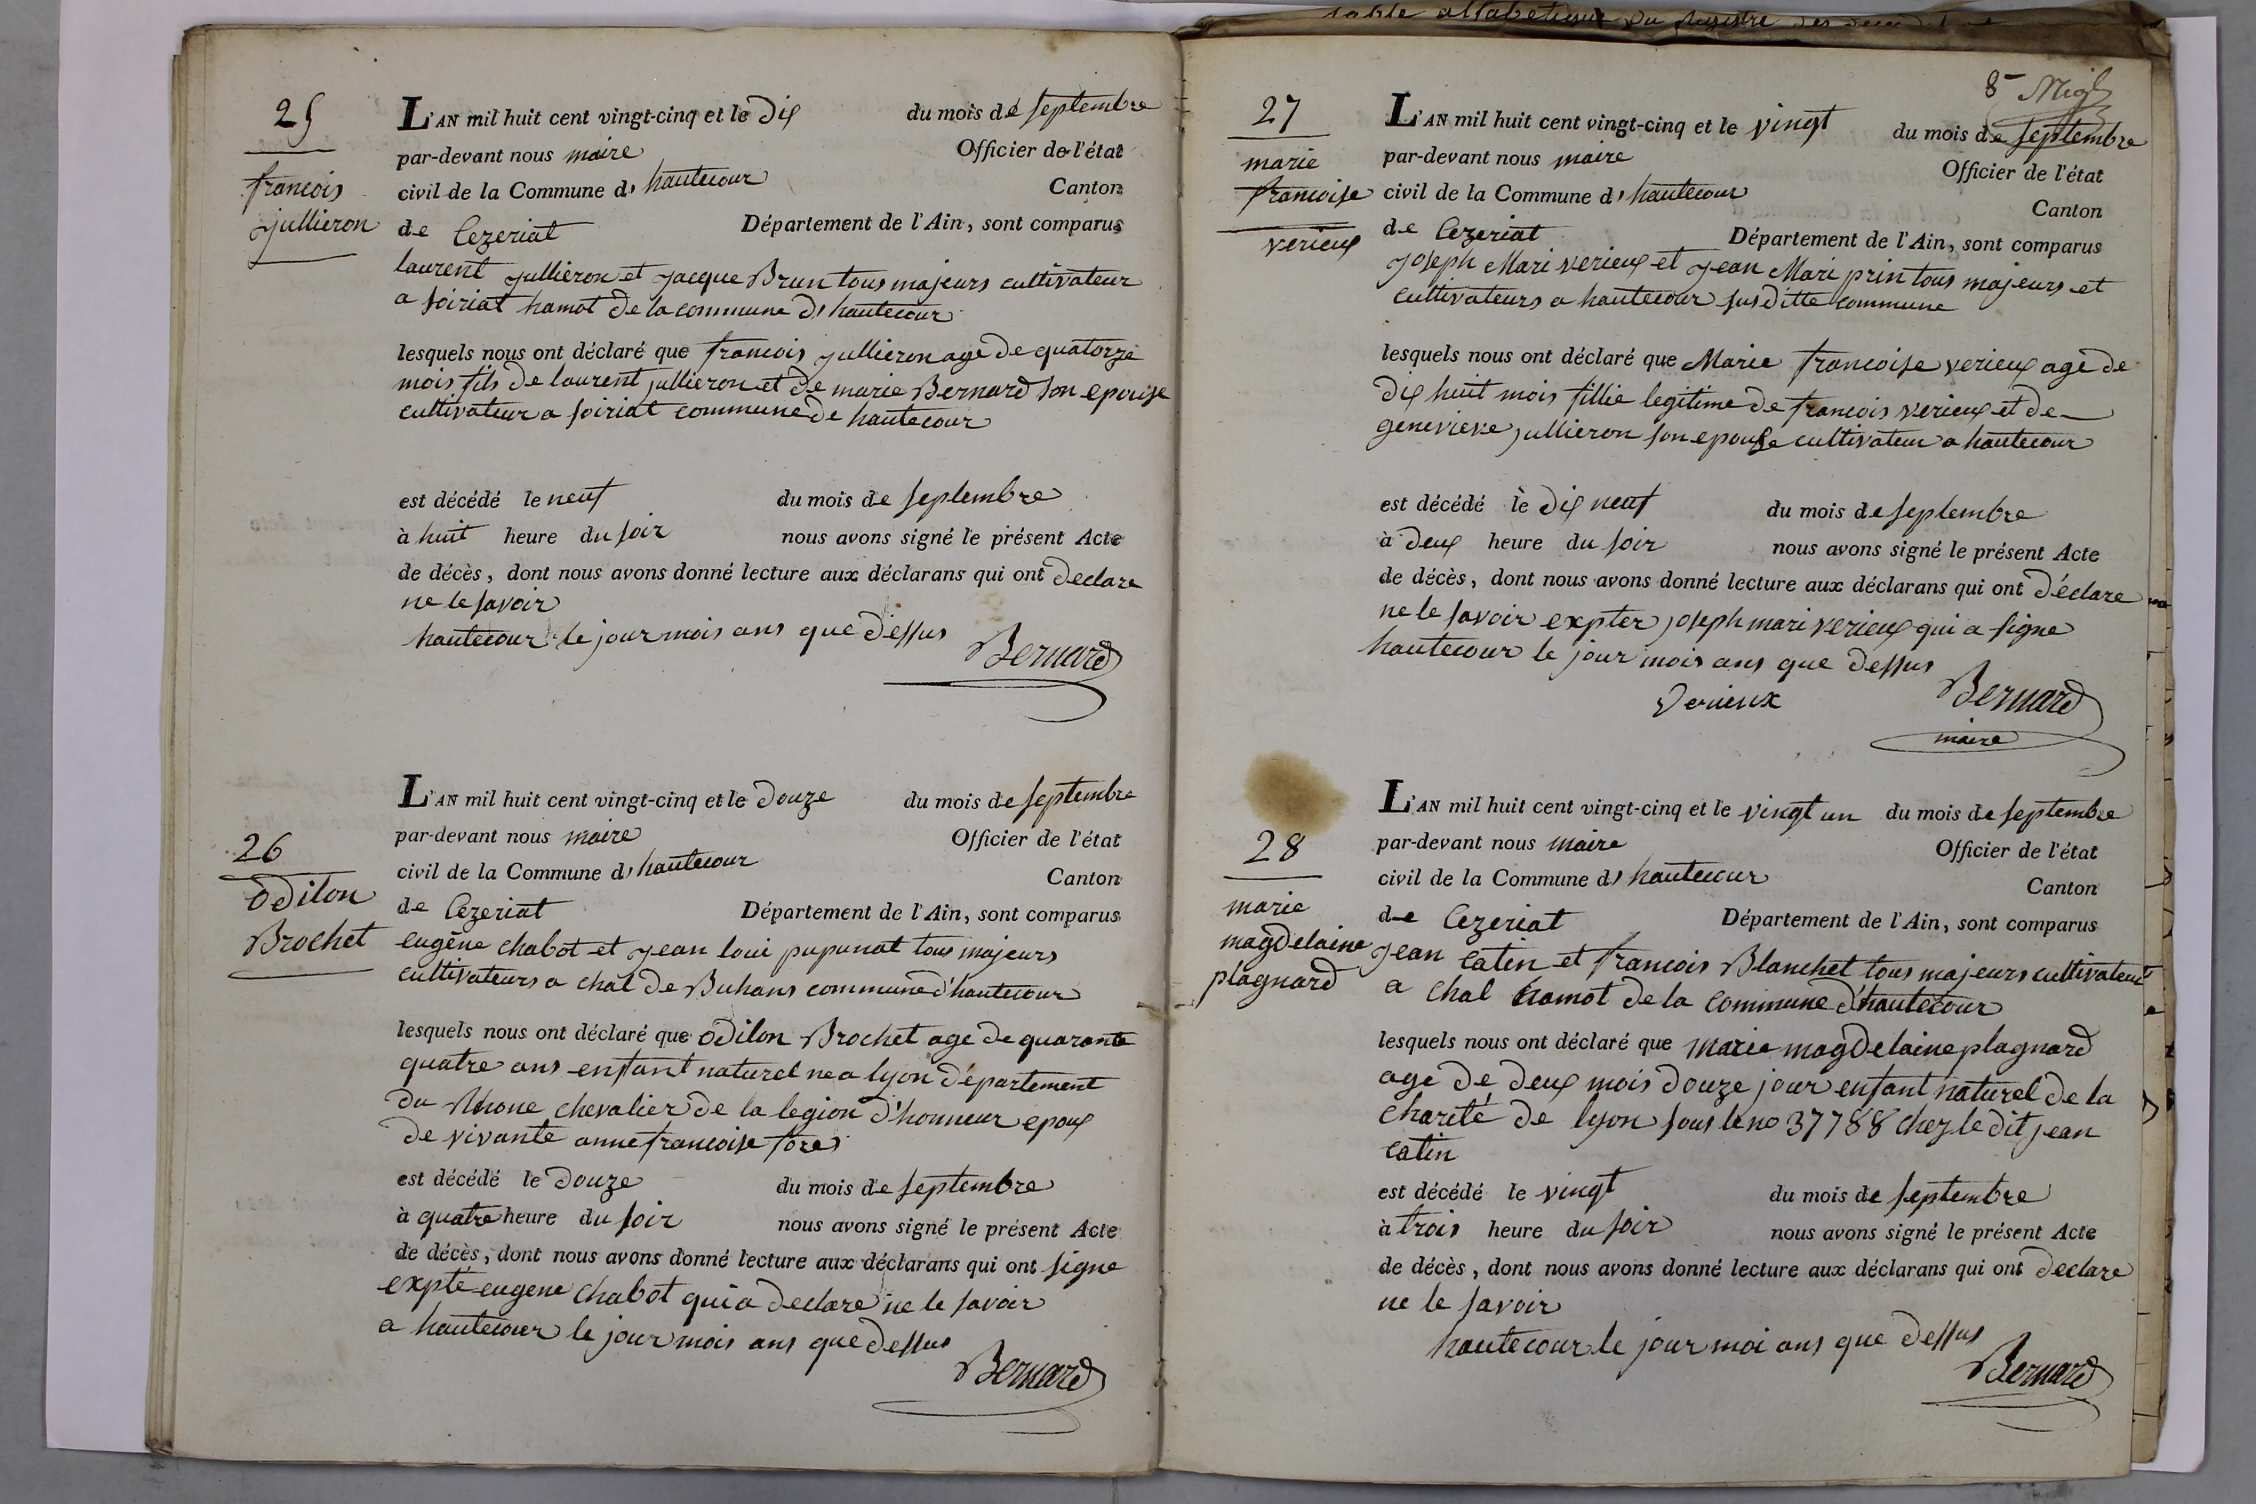 table alfabetique du registre des
25
francois
jullieron
L'AN mil huit cent vingt-cinq et le dix du mois de septembre
par-devant nous maire Officier de l'état
civil de la Commune d' hautecour Canton
de Cezeriat Département de l'Ain, sont comparus
laurent jullieron et jacque Brun tous majeurs cultivateur
a soiriat hamot de la commune d' hautecour
lesquels nous ont déclaré que francois jullieron age de quatorze
mois fils de laurent jullieron et de marie Bernard son epouise
cultivateur a soiriat commune de hautecour
est décédé le neuf du mois de septembre
à huit heure du soir nous avons signé le présent Acte
de décès, dont nous avons donné lecture aux déclarans qui ont declare
ne le savoir
hautecour le jour mois ans que dessus
Bernard
26
odilon
Brochet
L'AN mil huit cent vingt-cinq et le douze du mois de septembre
par-devant nous maire Officier de l'état
civil de la Commune d' hautecour Canton
de Cezeriat Département de l'Ain, sont comparus
eugène chabot et jean loui pupunat tous majeurs
cultivateurs a chal de Buhans commune d'hautecour
lesquels nous ont déclaré que odilon Brochet age de quarante
quatre ans enfant naturel ne a lyon departement
du Rhone chevalier de la legion d'honneur epoux
de vivante anne francoise fores
est décédé le douze du mois de septembre
à quatre heure du soir nous avons signé le présent Acte
de décès, dont nous avons donné lecture aux déclarans qui ont signe
expte eugene chabot qui a declare ne le savoir
a hautecour le jour mois ans que dessus
Bernard
8
27
marie
francoise
verieux
L'AN mil huit cent vingt-cinq et le vingt du mois de septembre
par-devant nous maire Officier de l'état
civil de la Commune d' hautecour Canton
de Cezeriat Département de l'Ain, sont comparus
joseph Mari verieux et jean Mari prin tous majeurs et
cultivateurs a hautecour susditte commune
lesquels nous ont déclaré que Marie francoise verieux age de
dix huit mois fillie legitime de francois verieux et de
genevieve jullieron son epouse cultivateur a hautecour
est décédé le dix neuf du mois de septembre
à deux heure du soir nous avons signé le présent Acte
de décès, dont nous avons donné lecture aux déclarans qui ont déclare
ne le savoir expter joseph mari verieux qui a signe
hautecour le jour mois ans que dessus
Verieux Bernard
maire
28
marie
magdelaine
plagnard
L'AN mil huit cent vingt-cinq et le vingt un du mois de septembre
par-devant nous maire Officier de l'état
civil de la Commune d' hautecour Canton
de Cezeriat Département de l'Ain, sont comparus
jean catin et francois Blanchet tous majeurs cultivateur
a chal hamot de la commune d'hautecour
lesquels nous ont déclaré que marie magdelaine plagnard
age de deux mois douze jour enfant naturel de la
charité de lyon sous le no 37788 chez le dit jean
catin
est décédé le vingt du mois de septembre
à trois heure du soir nous avons signé le présent Acte
de décès, dont nous avons donné lecture aux déclarans qui ont declare
ne le savoir
hautecour le jour moi ans que dessus
Bernard